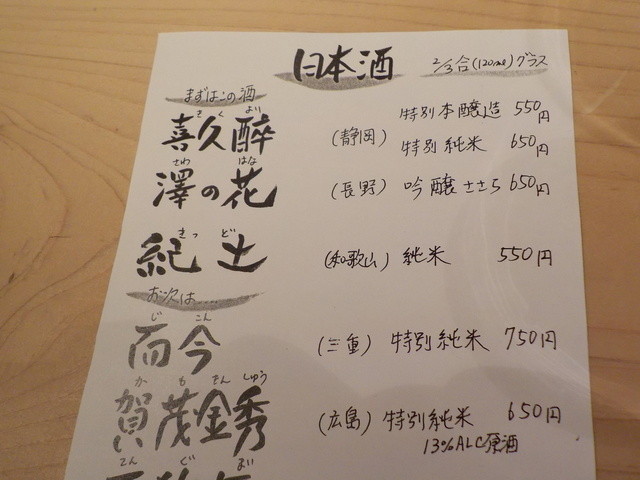 日本酒 2/3合(120ml)グラス
まずはこの酒
きくより
喜久酔 (静岡) 特別本醸造 550円
特別純米 650円
さわ はな
澤の花 (長野) 吟醸ささら 650円
きっど
紀土 (和歌山) 純米 550円
お次は.....
じ こん
而今 (三重) 特別純米 750円
かもきんしゅう
賀茂金秀 (広島) 特別純米 650円
13%ALC原酒